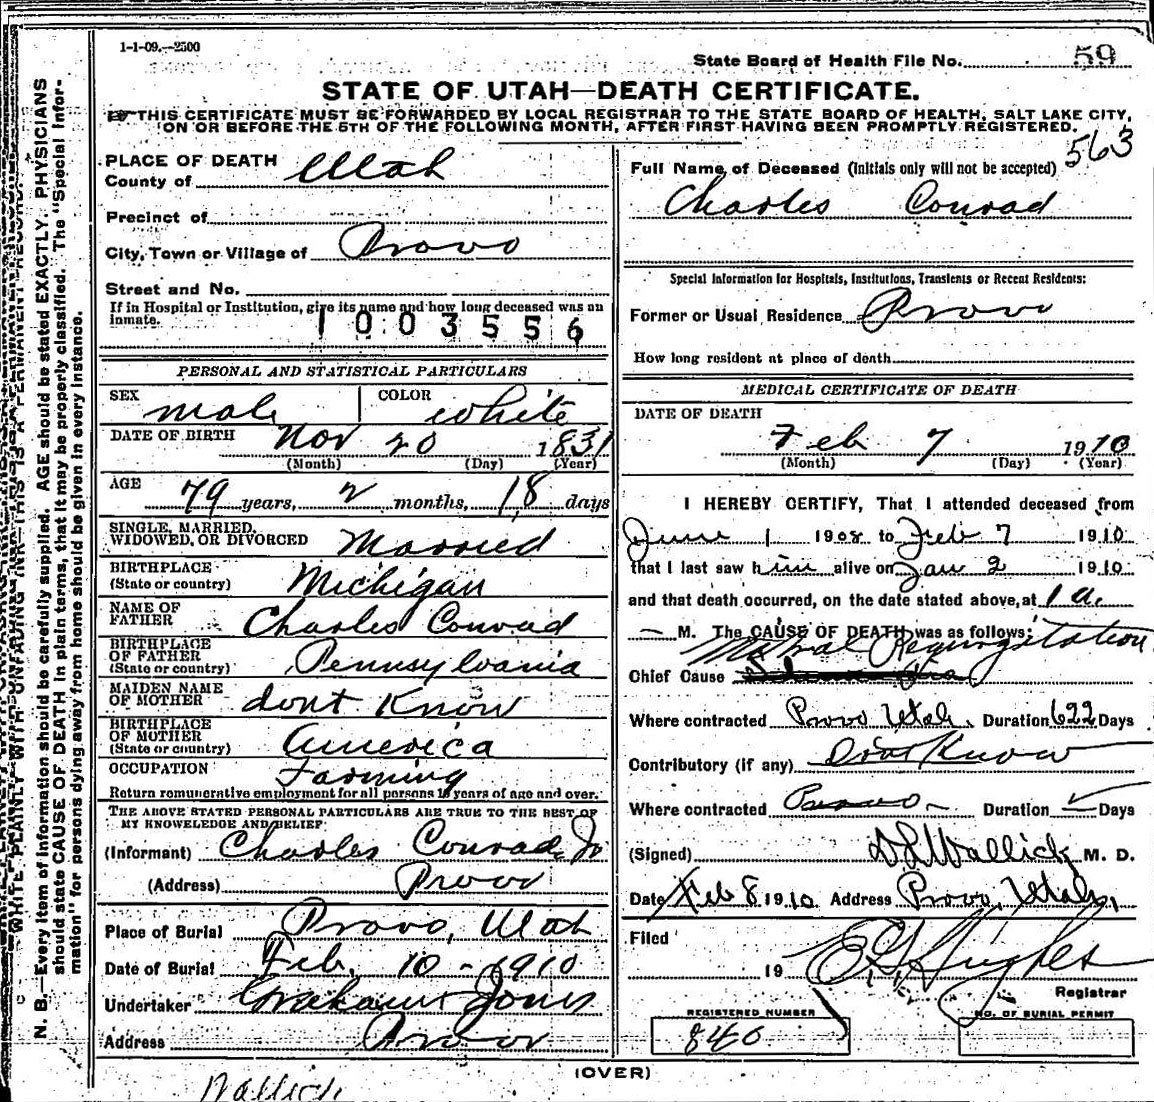 1-1-09.—2500
State Board of Health File No. 59
STATE OF UTAH—DEATH CERTIFICATE.
THIS CERTIFICATE MUST BE FORWARDED BY LOCAL REGISTRAR TO THE STATE BOARD OF HEALTH, SALT LAKE CITY,
ON OR BEFORE THE 5TH OF THE FOLLOWING MONTH, AFTER FIRST HAVING BEEN PROMPTLY REGISTERED.
563
PLACE OF DEATH
County of Utah
Precinct of
City, Town or Village of Provo
Street and No.
If in Hospital or Institution, give its name and how long deceased was an
inmate.
1003556
PERSONAL AND STATISTICAL PARTICULARS
SEX male COLOR white
DATE OF BIRTH Nov 20 1831
(Month) (Day) (Year)
AGE 79 years, 2 months, 18 days
SINGLE, MARRIED,
WIDOWED, OR DIVORCED Married
BIRTHPLACE
(State or country) Michigan
NAME OF
FATHER Charles Conrad
BIRTHPLACE
OF FATHER
(State or country) Pennsylvania
MAIDEN NAME
OF MOTHER dont Know
BIRTHPLACE
OF MOTHER
(State or country) America
OCCUPATION Farming
Return remunerative employment for all persons 10 years of age and over.
THE ABOVE STATED PERSONAL PARTICULARS ARE TRUE TO THE BEST OF
MY KNOWLEDGE AND BELIEF
(Informant) Charles Conrad Jr
(Address) Provo
Place of Burial Provo, Utah
Date of Burial Feb. 10 - 1910
Undertaker Graham Jones
Address Provo
Full Name of Deceased (Initials only will not be accepted)
Charles Conrad
Special Information for Hospitals, Institutions, Transients or Recent Residents:
Former or Usual Residence Provo
How long resident at place of death
MEDICAL CERTIFICATE OF DEATH
DATE OF DEATH
Feb 7 1910
(Month) (Day) (Year)
I HEREBY CERTIFY, That I attended deceased from
June 1 1908 to Feb 7 1910
that I last saw him alive on Jan 2 1910
and that death occurred, on the date stated above, at 1 a.
— M. The CAUSE OF DEATH was as follows:
Mitral Regurgitation
Chief Cause
Where contracted Provo Utah. Duration 622 Days
Contributory (if any) Dont Know
Where contracted Provo - Duration Days
(Signed) D L Wallick M. D.
Date Feb 8 1910 Address Provo, Utah,
Filed
19 E G Hughes
Registrar
REGISTERED NUMBER
840
NO. OF BURIAL PERMIT
(OVER)
Wallick
N. B.—Every item of information should be carefully supplied. AGE should be stated EXACTLY. PHYSICIANS
should state CAUSE OF DEATH in plain terms, that it may be properly classified. The "Special Infor-
mation" for persons dying away from home should be given in every instance.
WRITE PLAINLY WITH UNFADING INK—THIS IS A PERMANENT RECORD.